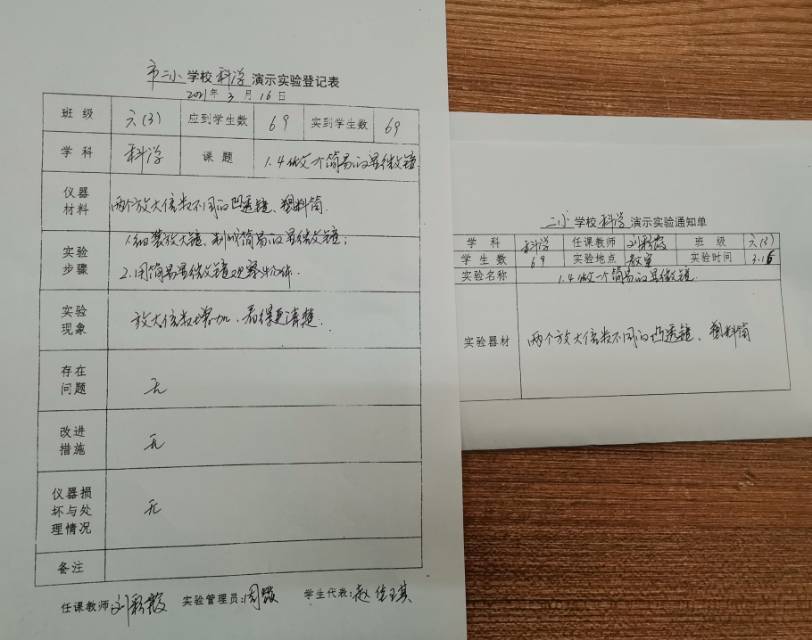 市二小学校科学演示实验登记表
2021年3月16日
班级 六(3) 应到学生数 69 实到学生数 69
学科 科学 课题 1.4做一个简易的显微镜
仪器材料 两个放大倍数不同的凸透镜、塑料筒
实验步骤 1.组装放大镜,制成简易的显微镜;
2.用简易显微镜观察物体.
实验现象 放大倍数增加,看得更清楚.
存在问题 无
改进措施 无
仪器损坏与处理情况 无
备注
任课教师:刘彩霞 实验管理员:周 学生代表:赵佳琪
二小学校科学演示实验通知单
学科 科学 任课教师 刘彩霞 班级 六(3)
学生数 69 实验地点 教室 实验时间 3.16
实验名称 1.4做一个简易的显微镜
实验器材 两个放大倍数不同的凸透镜、塑料筒